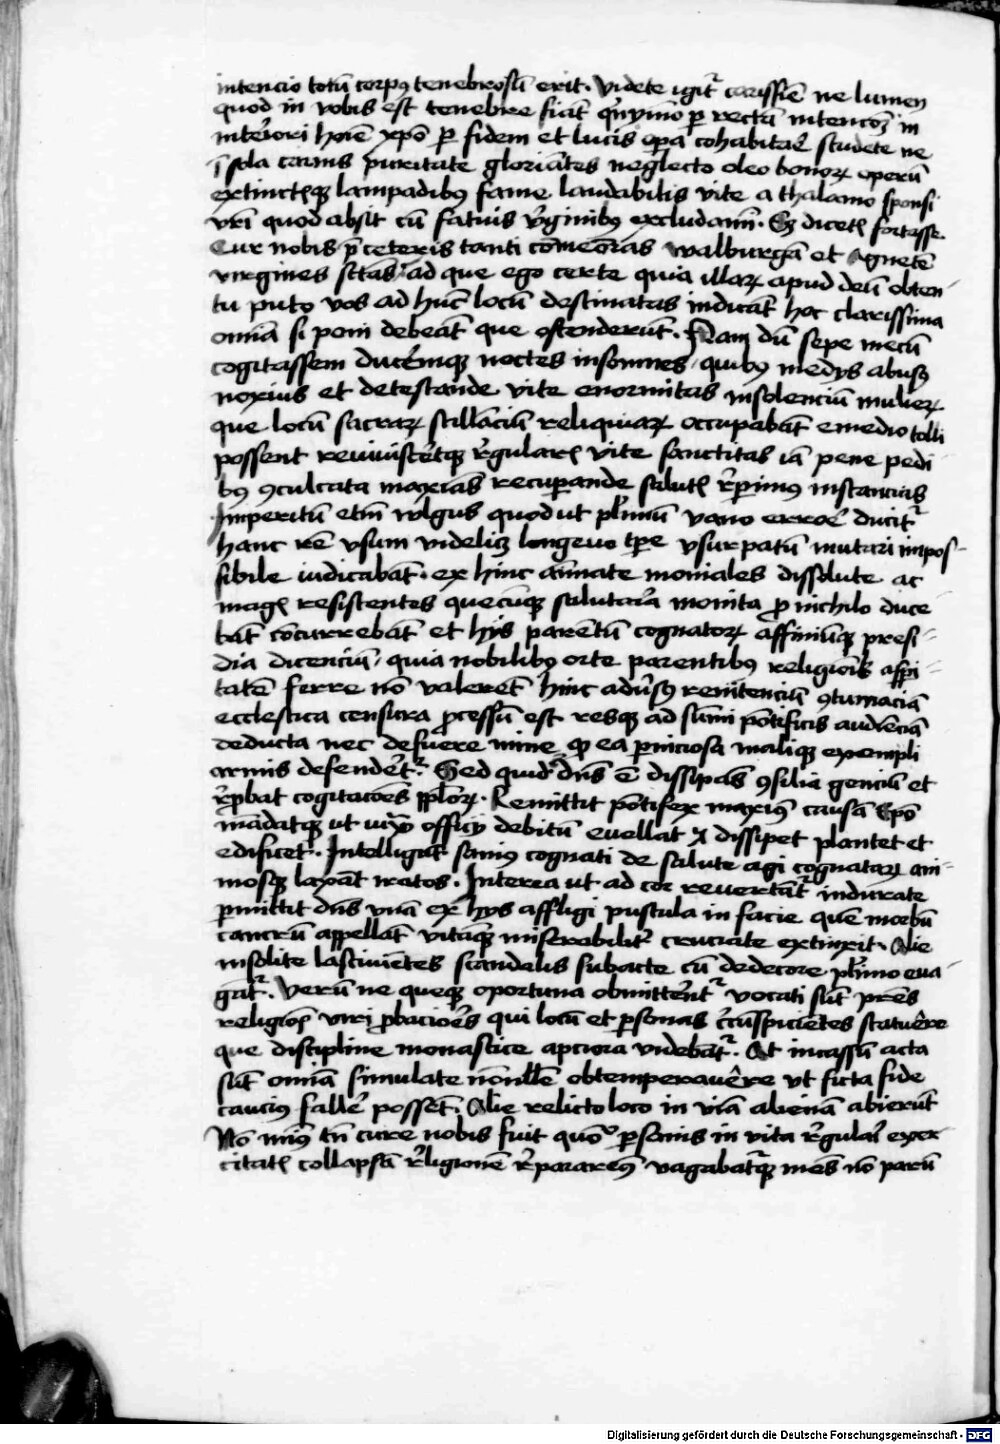 intencio totū corpꝯ tenebrosū erit. Videte igit᷑ carissīe ne lumen
quod in vobis est tenebre fiāt qͥnymmo ꝑ rectā intencōꝫ in
interiori hoīe xpō ꝑ fidem et lucis oꝑa cohabitare᷑ studete ne
ī sola carnis puritate gloriātes neglecto oleo bonoꝝ operū
extinctisqꝫ lampadibꝯ fame laudabilis vite a thalamo sponsi
vr̄i quod absit cū fatuis virginibꝯ excludamī. Sꝫ dicetis fortasse
Cur nobis p̄ ceteris tanti cōmeōras walburgā et Agnetē
virgines sctās ad que ego certe quia illaꝝ apud deū obten-
tu puto vos ad hūc locū destinatas indicāt hoc clarissima
omīa si pom debeāt que ostenderūt. Nam dū sepe mecū
cogitassem ducēremqꝫ noctes insomnes quibꝯ medijs abusꝯ
noxius et detestande vite enormitas insolenciū mulieꝝ
que locū sacraꝝ stillāciū reliquiaꝝ occupabāt e medio tolli
possent reuiuiscēretqꝫ rēgularis vite sanctitas iā pene pedi-
bꝯ ꝯculcata maxīas recuperande salutis rēperimꝯ instancias
Imperitū etīm wlgus quod ut plīmū vano errore ducit᷑
hanc rē vsum videlicꝫ longeuo tꝑe vsurpatū mutari impos-
sibile iudicabāt. ex hinc aīmate moniales dissolute ac
magis resistentes quecūqꝫ salutaria monita ꝓ nichilo duce-
bāt concurrebāt et hijs parētū cognatoꝝ affiniūqꝫ presi-
dia dicenciū quia nobilibꝯ orte parentibꝯ religionis asp̄i-
tatē ferre nō valerēt hinc adūsꝯ renitenciū ꝯtumaciā
ecclesiastica censura ꝓcessū est resqꝫ ad sūmi pōtificis audienciā
deducta nec defuere mine qꝫ ea ꝑniciosa maliqꝫ exempli
armis defenderēt᷑. Sed quid dn̄s ē dissipās ꝯsilia genciū et
rēꝓbat cogitacōes ppl̄oꝝ. Remittit pōtifex maxīꝯ causā Ep̄o
mādatqꝫ ut iuxta officij debitū euellat ⁊ dissipet plantet et
edificet. Intelligūt saniꝯ cognati de salute agi cognataꝝ ani-
mosqꝫ laxāt iratos. Interea ut ad cor reuertāt᷑ indurate
ꝑmittit dn̄s vnā ex hijs affligi pustula in facie quē morbū
cancrū appellāt vitāqꝫ miserabilit᷑ cruciate extinxit. Alie
insolite lasciuiētes scandalis subacte cū dedecore plīmo eua-
gāt᷑. Verū ne queqꝫ oportuna obmitterēnt᷑ vocati sūt pr̄es
religiosi viri ꝓbaciores qui locū et ꝑsonas circūspicientes statuēre
que discipline monastice apciora videbāt᷑. At incassū acta
sūt omīa simulate nōnulle obtemperauēre vt ficta fide
cauciꝯ falle᷑ possēt. Alie relicto loco in viā alienā abierūt
Nō minꝯ tn̄ cure nobis fuit quō ꝑsonis in vita rēgulari exer-
citatis collapsā rēligionē rēpararemꝯ vagabatūrqꝫ mēs nō parū
Digitalisierung gefördert durch die Deutsche Forschungsgemeinschaft - DFG